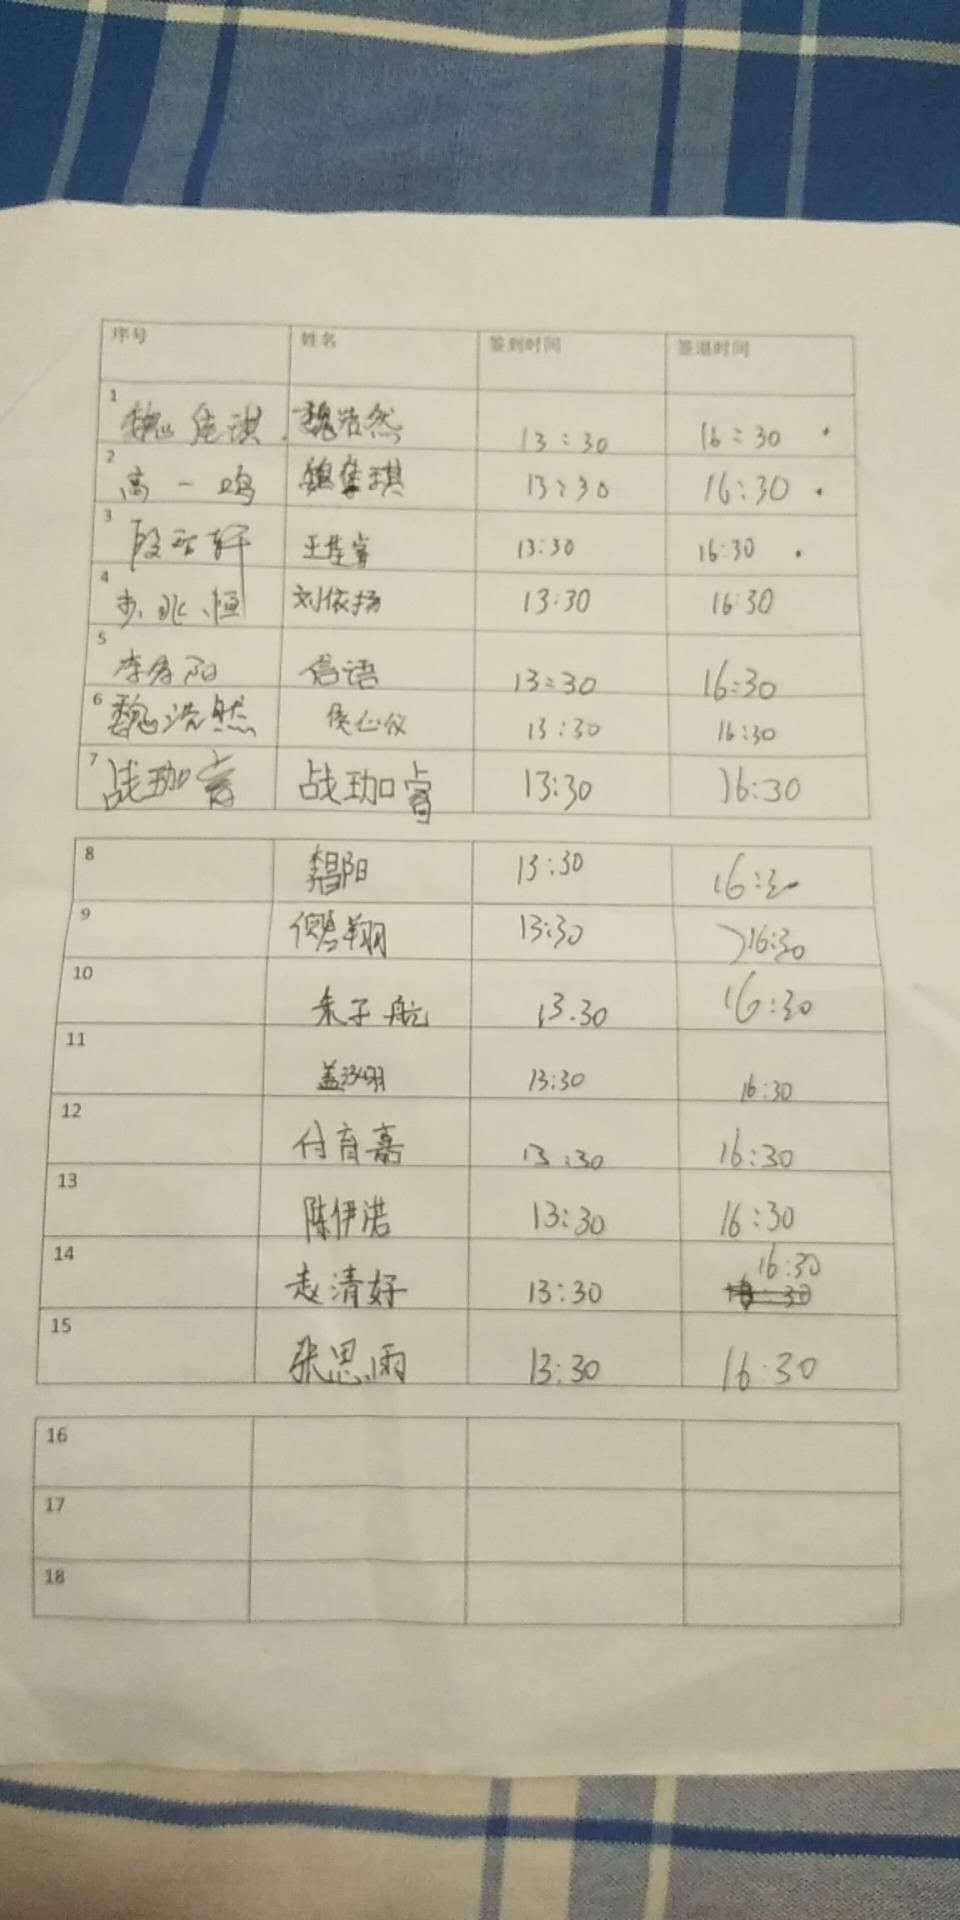 序号 姓名 签到时间 签退时间
1 魏 琪 魏浩然 13:30 16:30
2 高一鸣 魏 琪 13:30 16:30
3 段 轩 王 睿 13:30 16:30
4 兆恒 刘依扬 13:30 16:30
5 李 阳 信语 13:30 16:30
6 魏浩然 侯心仪 13:30 16:30
7 战珈睿 战珈睿 13:30 16:30
8 阳 13:30 16:30
9 翔 13:30 16:30
10 朱子航 13.30 16:30
11 盖 13:30 16:30
12 付育嘉 13:30 16:30
13 陈伊诺 13:30 16:30
14 赵清好 13:30 16:30
15 张思雨 13:30 16:30
16
17
18